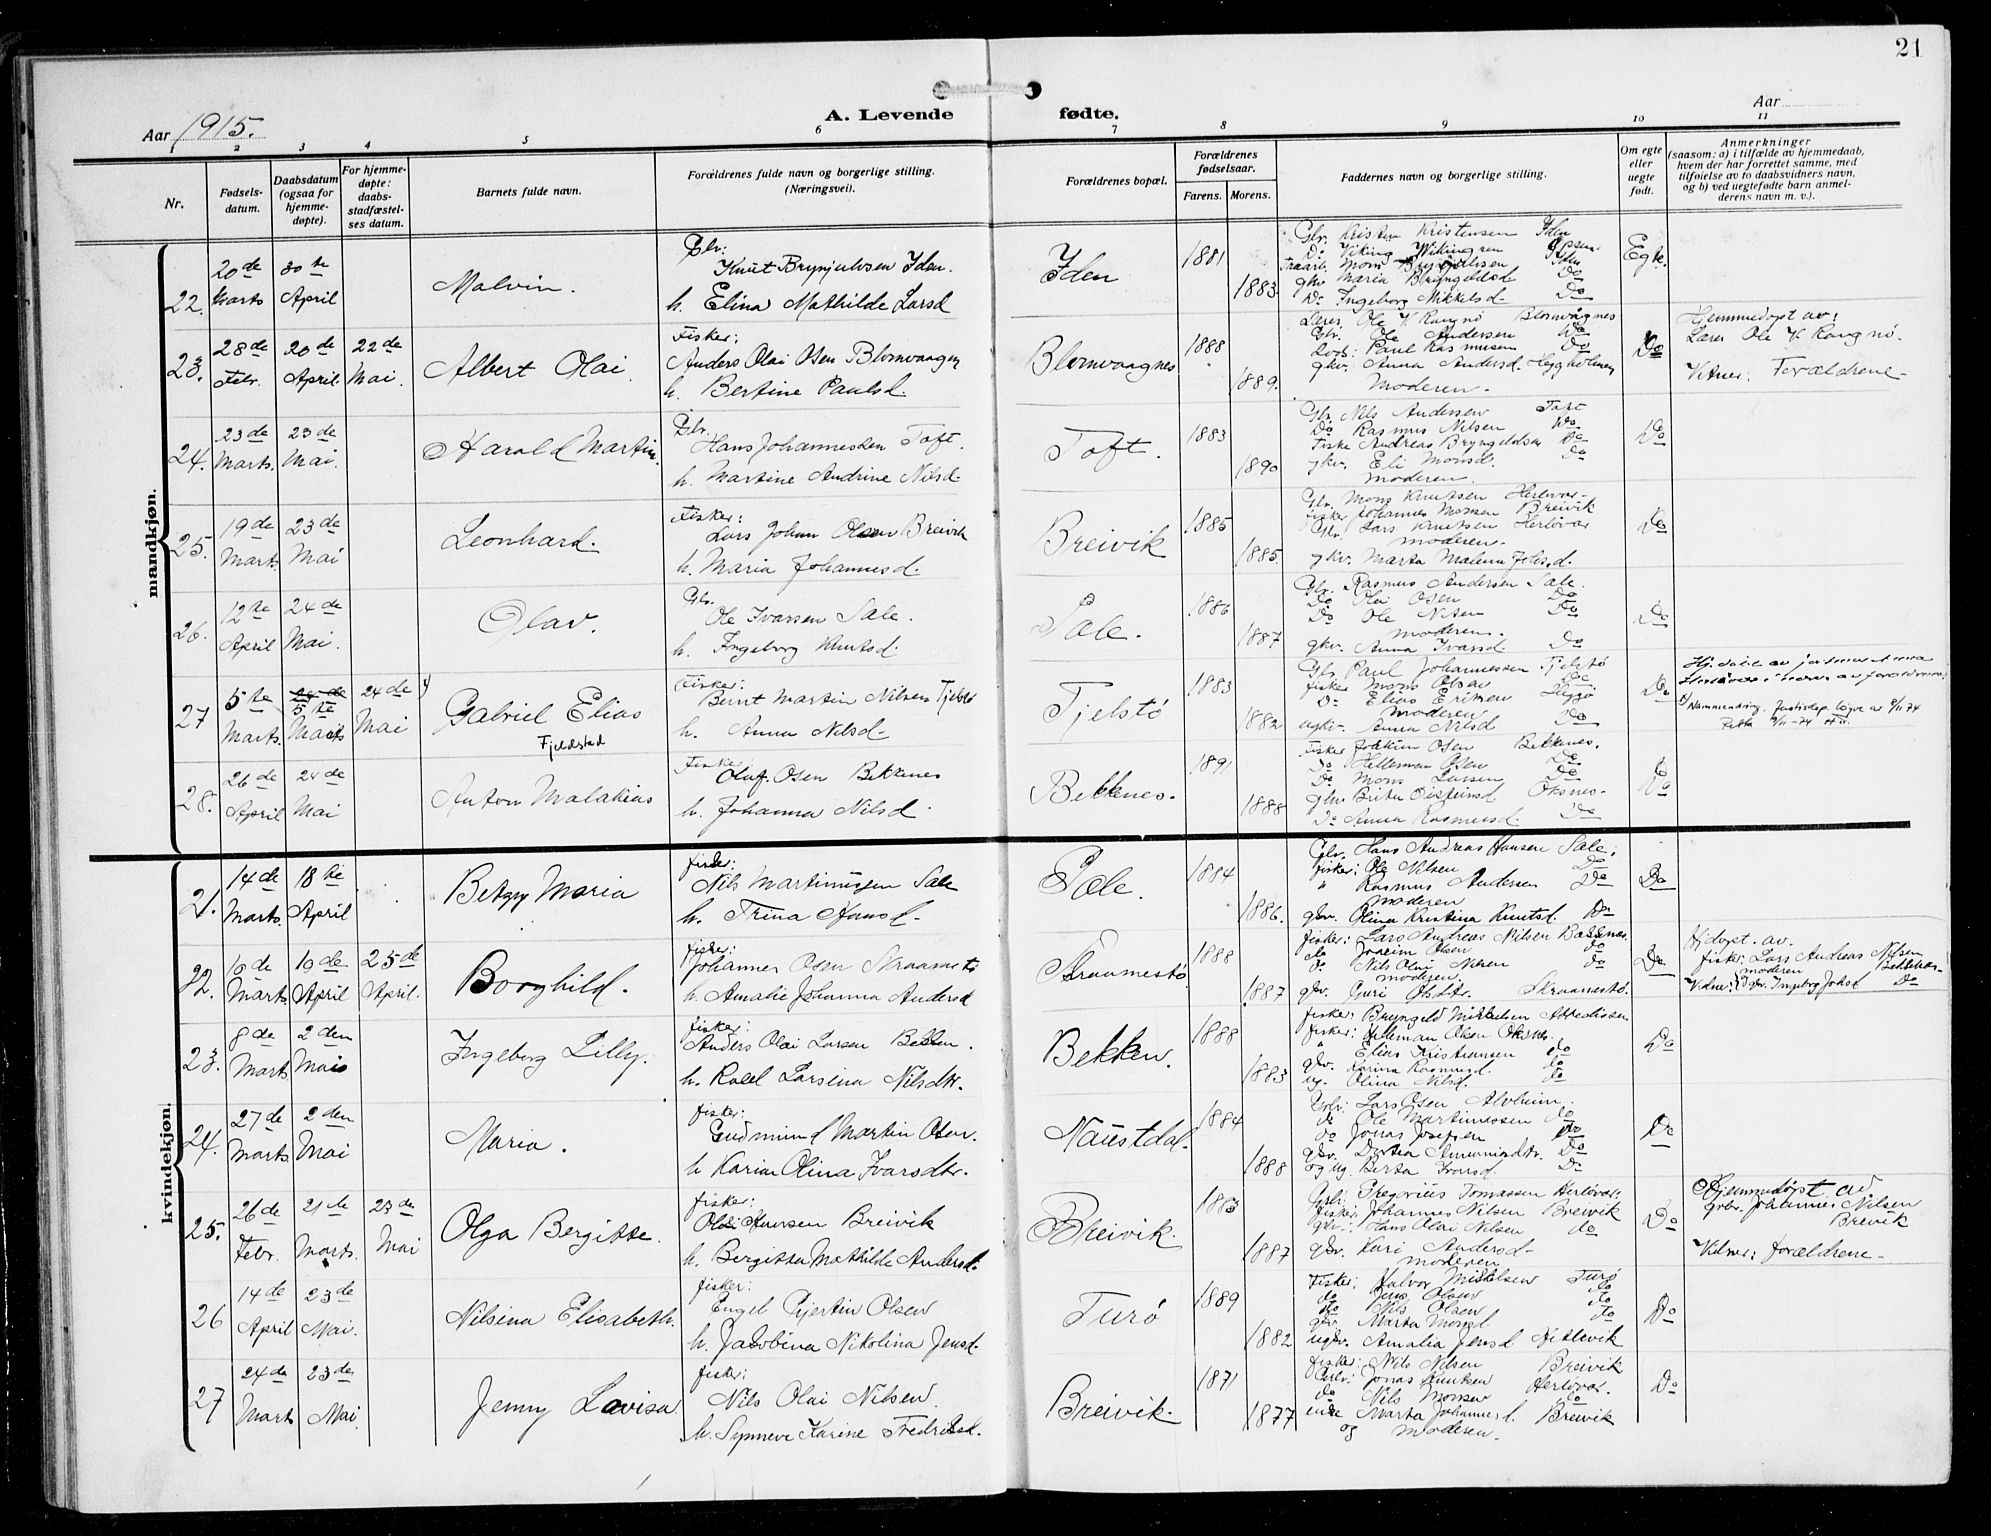 21
Aar 1915.
A. Levende fødte.
Aar
1 2 3 4 5 6 7 8 9 10 11
Nr.
Fødsels-
datum.
Daabsdatum
(ogsaa for
hjemme-
døpte).
For hjemme-
døpte:
daabs-
stadfæstel-
ses datum.
Barnets fulde navn.
Forældrenes fulde navn og borgerlige stilling.
(Næringsvei).
Forældrenes bopæl.
Forældrenes
fødselsaar.
Farens. Morens.
Faddernes navn og borgerlige stilling.
Om egte
eller
uegte
født.
Anmerkninger
(saasom: a) i tilfælde av hjemmedaab,
hvem der har forrettet samme, med
tilføielse av to daabsvidners navn,
og b) ved uegtefødte barn anmel-
derens navn m. v.).
mandkjøn.
22. 20de Marts 30te April
Malvin.
Gbr:
Knut Brynjulvsen Iden.
h. Elina Mathilde Larsd
Iden
1881 1883.
Gbr. Kristen Kristensen Iden
Do Viking Vikingsen
Mons Iden
gkv Maria Do
Do Ingeborg Mikkelsd. Do
Egte.
23. 28de Febr. 20de April 22de Mai.
Albert Olai.
Fisker:
Anders Olai Osen Blomvaagnes
h. Bertine Paulsd.
Blomvaagnes
1888 1889.
Lærer Ole K. Rongnø Blomvågnes
Gbr. Ole Andersen Do
Paul Rasmusen Do
gkv. Anna Andersd. Heggholmen
Moderen.
Do
Hjemmedøpt av:
Lærer Ole K. Rongnø.
Vidner: Forældrene
24. 23de Marts. 23de Mai.
Harald Martin.
Gbr.
Hans Johannessen Toft.
h. Martine Andrine Nilsd.
Toft.
1883 1890
Gbr. Nils Andersen Toft
Do Rasmus Nilsen Do
Fisker Andreas Bryngeldsen Do
gkv. Eli Monsd. Do
Moderen.
Do
25. 19de Marts. 23de Mai
Leonhard.
Fisker:
Lars Johan Olsen Breivik
h. Maria Johannesd.
Breivik
1885 1885.
Gbr. Mons Knutsen Herløvær
Fisker Johannes Monsen Breivik
Gbr. Lars Knutsen Herløvær
moderen.
gkv. Marta Malena
Do
26. 12te April 24de Mai.
Olav.
Gbr.
Ole Ivarsen Sale.
h. Ingeborg Knutsd.
Sale.
1886 1887
Gbr. Rasmus Andersen Sale.
Do Olai Osen Do
Do Ole Do
moderen.
gkv. Anna Ivarsd. Do
Do
27 5te Marts. 5te Marts 24de Mai
Gabriel Elias
Fjeldstad
Fisker:
Bernt Martin Nilsen Tjelstø
h. Anna Nilsd.
Tjelstø
1883 1882
Gbr. Paul Johannessen Tjelstø
fisker Mons Olsen Do
Do Elias Eriksen
moderen
ugkv. Anna Nilsd Do
Do
Hj. døpt av jordmor Anna
1) Navnendring.
28. 26de April 24de Mai
Anton Malakias
Fisker
Oluf Osen Bekknes
h. Johanna Nilsd.
Bekknes.
1891 1888
Fisker Joakim Osen Bekknes.
Do Hilleman Osen Do
Do Mons Larsen Do
gkv Brita Øisteinsd Oksnes.
Do Anna Rasmusd. Do
Do
kvindekjøn.
21. 14de Marts. 18te April
Betzy Maria
fisker:
Nils Martinussen Sale
h. Trina Hansd.
Sale.
1884 1886.
Gbr. Hans Andreas Hansen Sale.
fisker: Ole Nilsen Do
" Rasmus Andersen Do
moderen
gbr. Olina Kristina Knutsd. Do
Do
22. 10de Marts 19de April 25de April.
Borghild.
fisker:
Johannes Osen Skraamestø
h. Amalie Johanna Andersd
Skraamestø
1888 1887
fisker: Lars Andreas Nilsen Bakknes.
do Joakim Olsen do
do Nils Olai Nilsen do
moderen
gbr. Guri Skraamestø.
Do
Hjdøpt. av.
fisker: Lars Andreas Nilsen
Bekknes.
moderen
Vidner: gbr. Ingeborg Do
23. 8de Marts 2den Mai
Ingeborg Lilly.
fisker:
Anders Olai Larsen Bekken.
h. Rakel Larsina Nilsdtr.
Bekken.
1888 1883
fisker: Bryngeld Mikkelsen
fisker: Hilleman Olsen Oksnes.
" Elias Kristiansen do
gbr. Karina Rasmusd. do
ug. Olina Nilsd. do
Do
24. 27de Marts. 2den Mai
Maria.
fisker:
Gudmund Martin Olsen.
h Karina Olina Ivarsdtr.
Naustdal.
1884 1888
Gbr: Lars Osen Alvheim.
do Ole Martinussen do
do Jonas Josefsen do
gbr. Dortea Do
og ug. Berta Ivarsd. Do
Do
25. 26de Febr. 21de Marts. 23de Mai
Olga Bergitte.
fisker:
Olai Breivik
h. Bergitta Mathilde Andersd.
Breivik.
1883 1887
Gbr: Gregorius Tomassen Herløvær.
fisker: Johannes Nilsen Breivik
gbr.: Hans Olai Nilsen do
gbr. Kari Andersd.
moderen
Do
Hjemmedøpt av
gbr. Johannes Nilsen
Breivik
Vidner: forældrene.
26 14de April 23de Mai.
Nilsina Elisabeth.
fisker:
Engel Gjertin Olsen
h. Jakobina Nikolina Jensd.
Turø
1889 1882
Fisker: Halvor Mikkelsen Turø
do Jens Olsen do
do Nils Olsen do
gbr. Marta Monsd
ugbr. Amalia Jensd
Do
27 24de Marts 23de Mai.
Jenny Lovisa
fisker:
Nils Olai Nilsen.
h. Synneve Karine Fredriksd.
Breivik.
1871 1877
fisker: Nils Nilsen Breivik
Gbr: Jonas Knutsen Herløvær.
do Nils Monsen do
enke Marta Johannesd. Breivik
og moderen.
Do